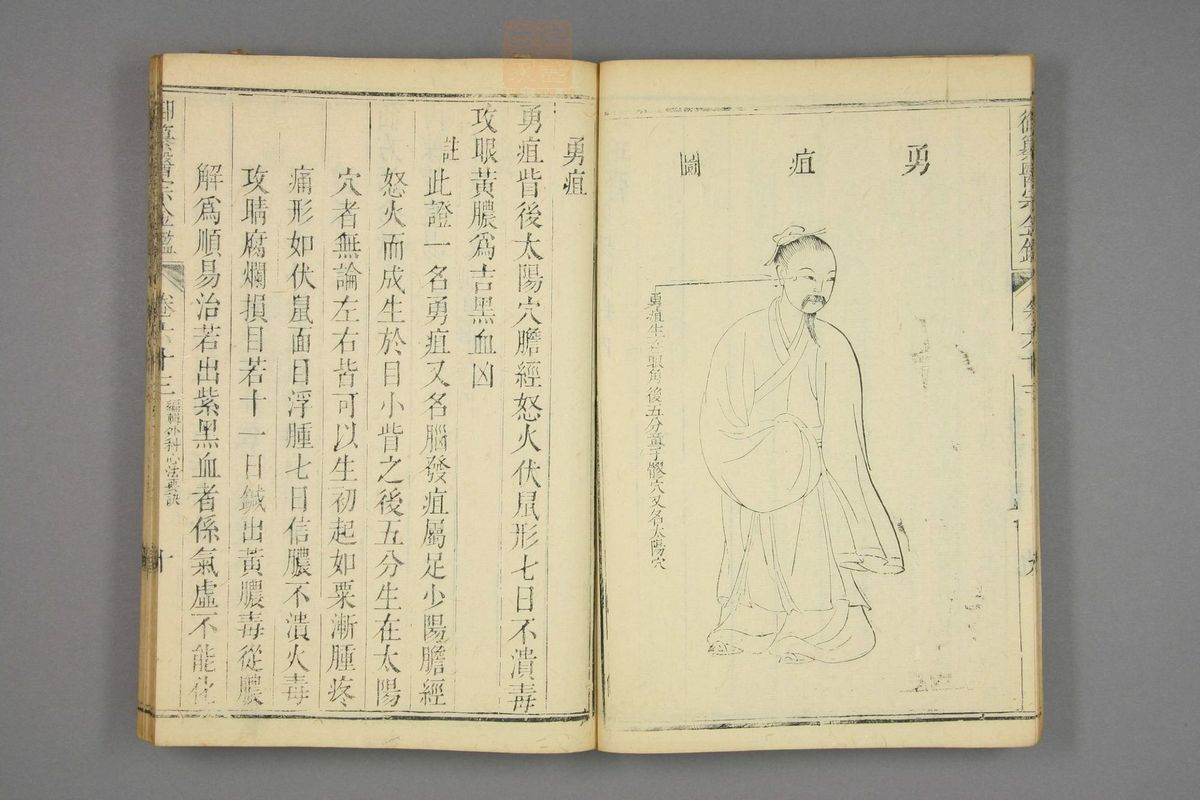 御纂醫宗金鑑
勇疽圖
勇疽生眼角後五分童子髎穴又名太陽穴
勇疽
勇疽眥後太陽穴膽經怒火伏鼠形七日不潰毒
攻眼黃膿爲吉黑血凶
註此證一名勇疽又名腦發疽屬足少陽膽經
怒火而成生於目小眥之後五分生在太陽
穴者無論左右皆可以生初起如粟漸腫疼
痛形如伏鼠面目浮腫七日信膿不潰火毒
攻睛腐爛損目若十一日鍼出黃膿毒從膿
解爲順易治若出紫黑血者係氣虛不能化
御纂醫宗金鑑 卷六十三 編輯外科心法要訣 十